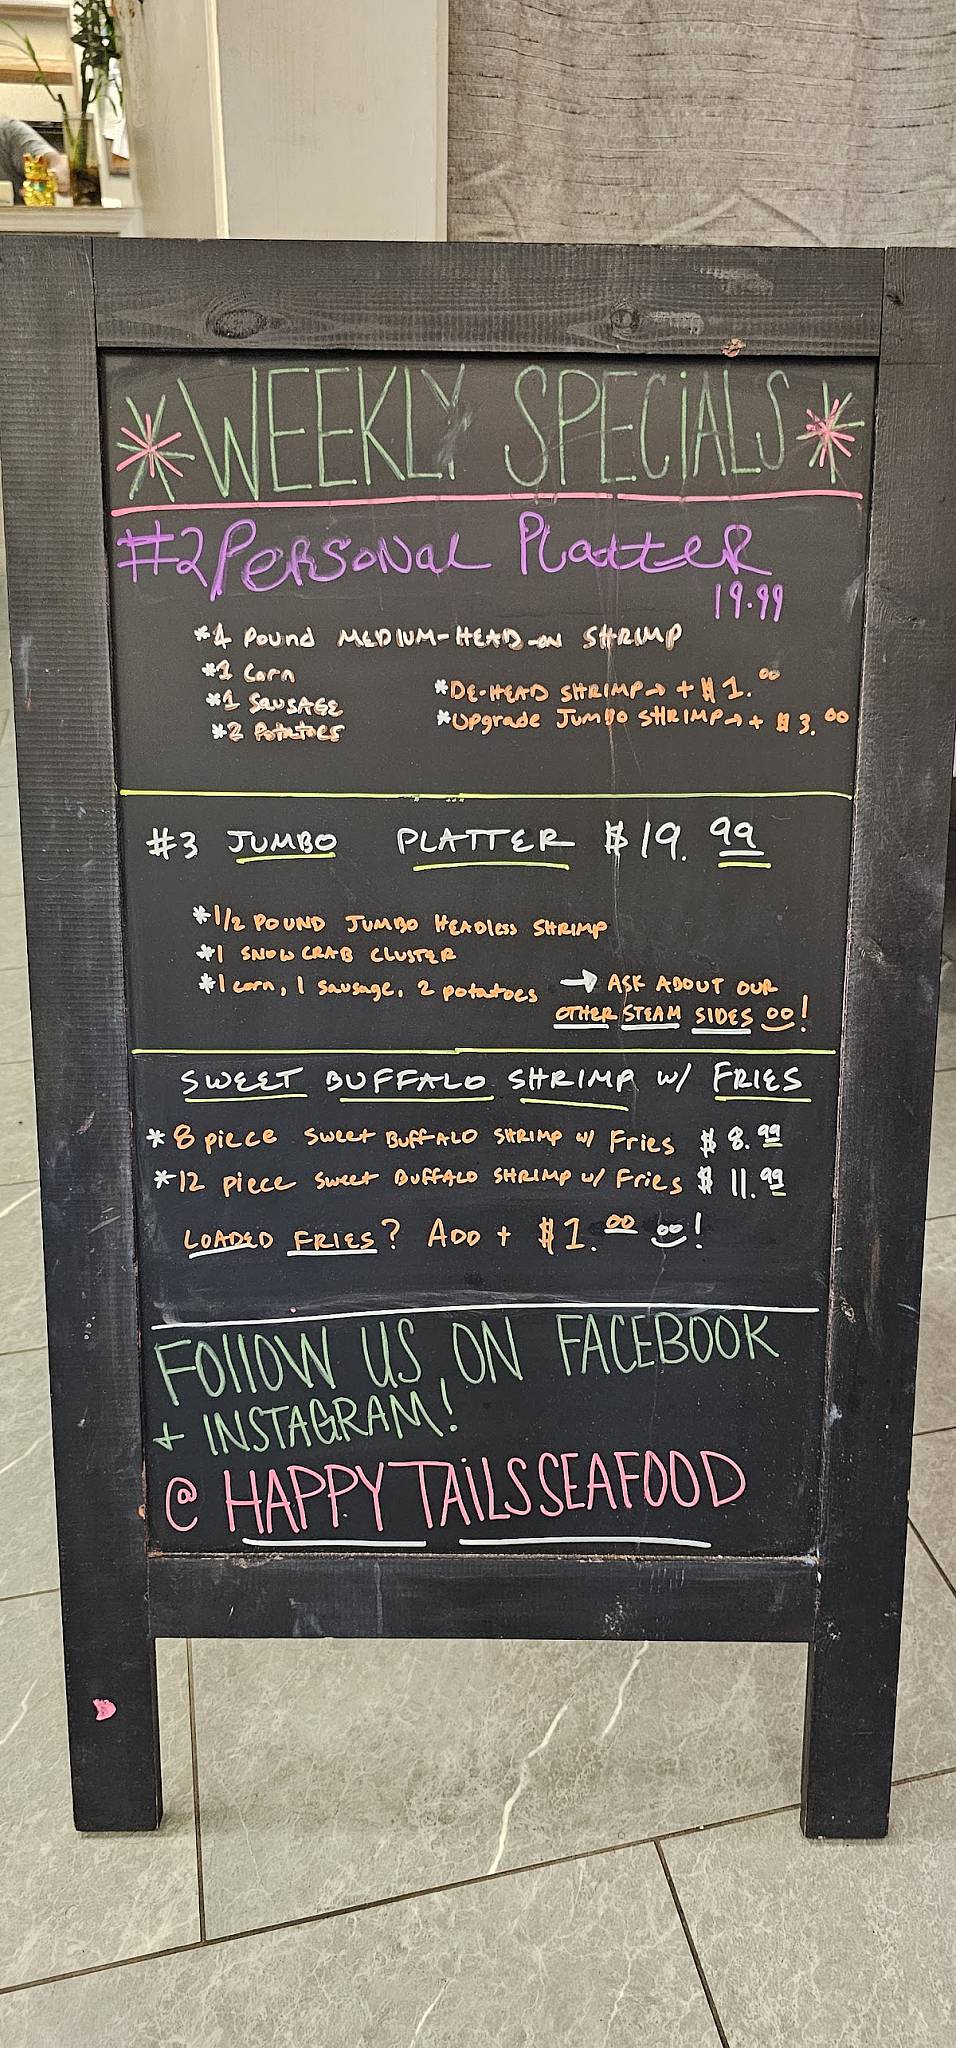 *WEEKLY SPECiALS*
#2 PERSONAL PLattER
19.99
*1 Pound MEDIUM-HEAD-on SHRIMP
*1 Corn
*1 SAUSAGE
*2 Potatoes
*DE-HEAD SHRIMP→ + $1.00
*Upgrade Jumbo SHRIMP→ + $3.00
#3 JUMBO PLATTER $19.99
*1/2 POUND JUMBO HEADless SHRIMP
*1 SNOW CRAB CLUSTER
*1 corn, 1 sausage, 2 potatoes → ASK ABOUT OUR
OTHER STEAM SIDES !
SWEET BUFFALO SHRIMP W/ FRIES
* 8 piece Sweet BUFFALO SHRIMP w/ Fries $8.99
*12 piece Sweet BUFFALO SHRIMP w/ Fries $11.99
LOADED FRIES? ADD + $1.00 !
FOllOW US ON FACEBOOK
+ INSTAGRAM!
@ HAPPYTAiLSSEAFOOD